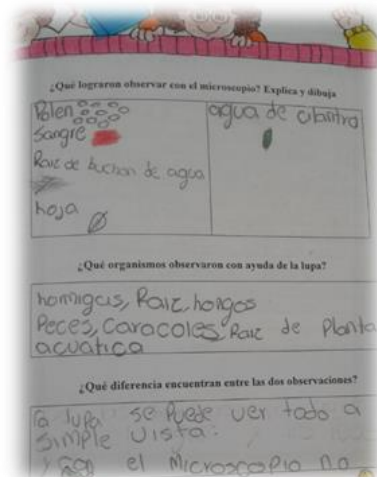 ¿Qué lograron observar con el microscopio? Explica y dibuja
Polen
Sangre
Raiz de buchon de agua
hoja
agua de cilantro
¿Qué organismos observaron con ayuda de la lupa?
hormigas, Raiz, hongos
Peces, caracoles, Raiz de Planta
acuatica
¿Qué diferencia encuentran entre las dos observaciones?
la lupa se Puede ver todo a
simple vista.
y con el microscopio no